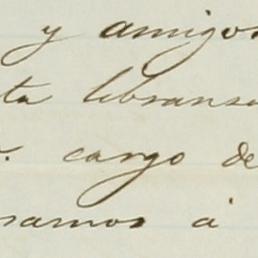 y amigos
ta libransa
cargo de
ramos á